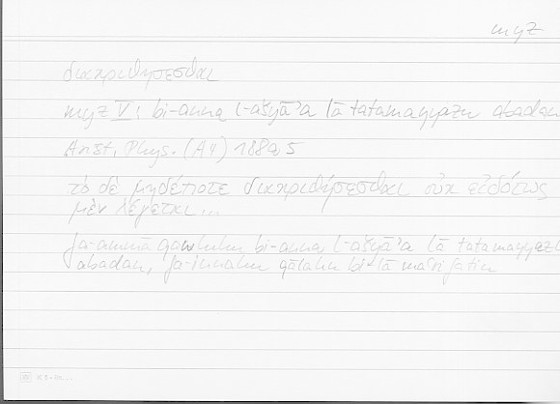 myz
διακριθήσεσθαι
myz V: bi-anna l-ašyā'a lā tatamayyazu abadan
Arist. Phys. (A4) 188a5
τὸ δὲ μηδέποτε διακριθήσεσθαι οὐκ εἰδότως
μὲν λέγεται...
fa-ammā qawluhu bi-anna l-ašyā'a lā tatamayyazu
abadan, fa-innahu qālahu bi-lā ma'rifatin